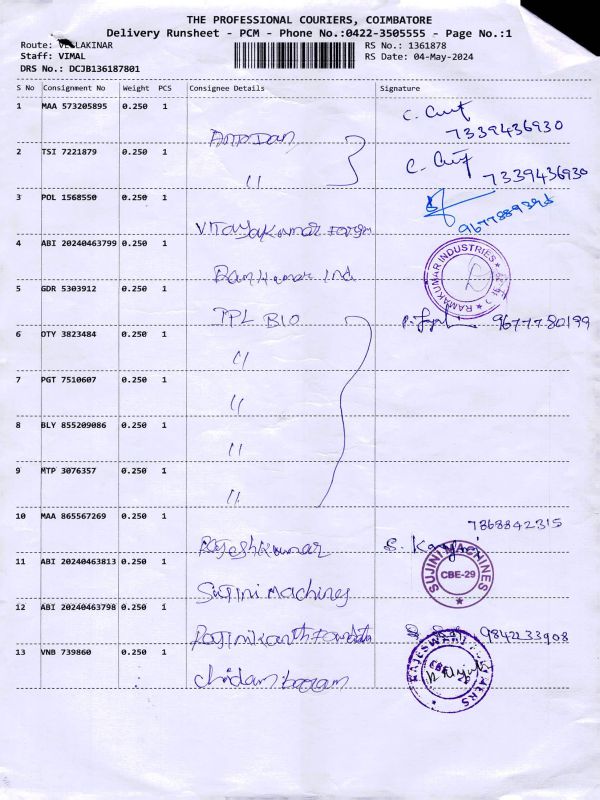 THE PROFESSIONAL COURIERS, COIMBATORE
Delivery Runsheet - PCM - Phone No.:0422-3505555 - Page No.:1
Route: VELLAKINAR
RS No.: 1361878
Staff: VIMAL
RS Date: 04-May-2024
DRS No.: DCJB136187801
S No Consignment No Weight PCS Consignee Details Signature
1 MAA 573205895 0.250 1
7339436930
2 TSI 7221879 0.250 1
" 7339436930
3 POL 1568550 0.250 1
4 ABI 20240463799 0.250 1
Ramkumar Ind
RAMAKUMAR INDUSTRIES
5 GDR 5303912 0.250 1
IPL BIO 9677780199
6 DTY 3823484 0.250 1
"
7 PGT 7510607 0.250 1
"
8 BLY 855209086 0.250 1
"
9 MTP 3076357 0.250 1
"
10 MAA 865567269 0.250 1
7868842315
Rajeshkumar
11 ABI 20240463813 0.250 1
SUJINI MACHINES
CBE-29
Sujini Machines
12 ABI 20240463798 0.250 1
9842233908
13 VNB 739860 0.250 1
Chidambaram